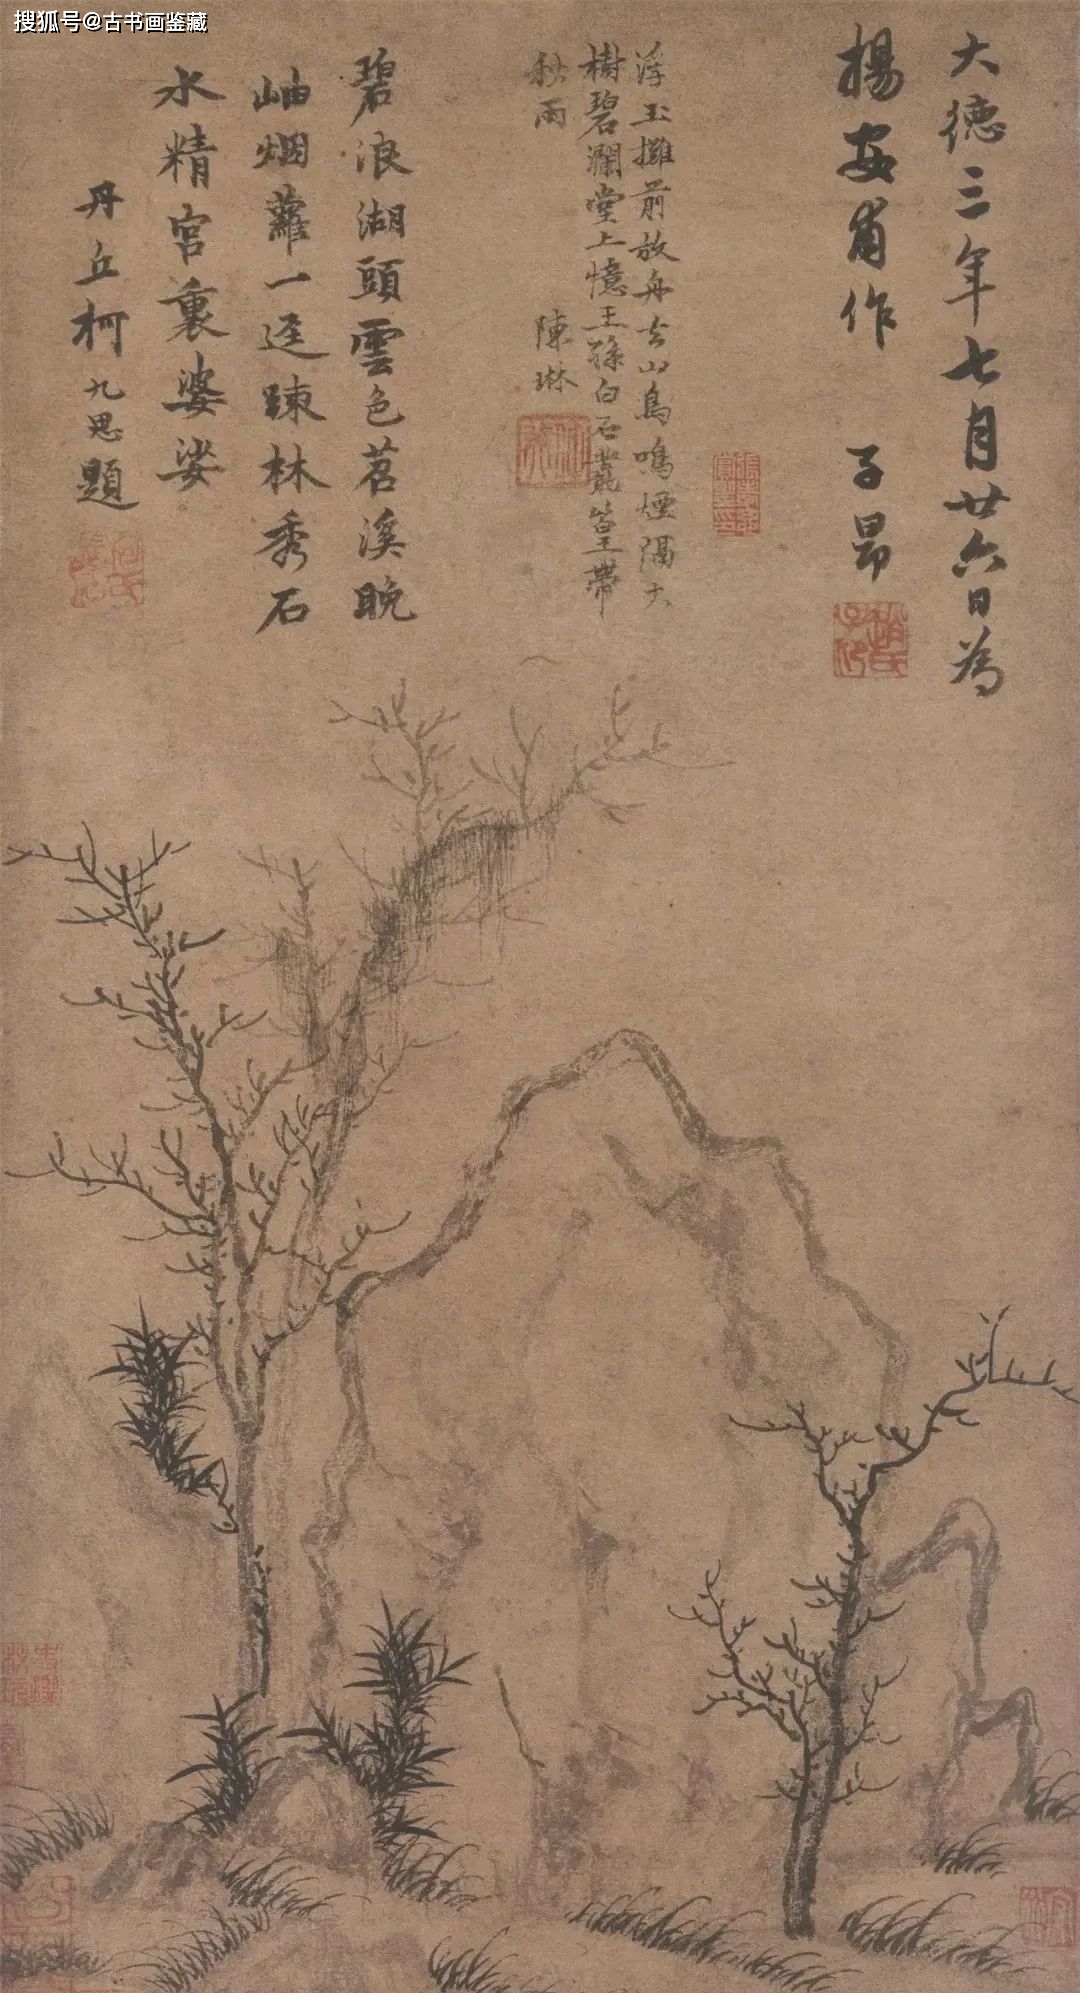 搜狐号@古书画鉴藏
大德三年七月廿六日為
楊安甫作 子昂
浮玉攤前放舟去山鳥鳴煙隔大
樹碧瀾堂上憶王孫白石叢篁帶
秋雨 陳琳
碧浪湖頭雲色苕溪晚
岫烟蘿一逕踈林秀石
水精宮裏婆娑
丹丘柯九思題